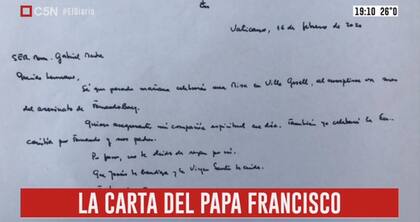 C5N
#ElDiario
19:10 26°C
Vaticano, 16 de febrero de 2020
SER Mons. Gabriel Mestre
Querido hermano,
Sé que pasado mañana celebrarás una Misa en Villa Gesell, al cumplirse un mes
del asesinato de Fernando
Quiero asegurarte mi compañía espiritual ese día. También yo celebraré la Eu-
caristía por Fernando y sus padres.
Por favor, no te olvides de rezar por mí.
Que Jesús te bendiga y la Virgen Santa te cuide.
LA CARTA DEL PAPA FRANCISCO